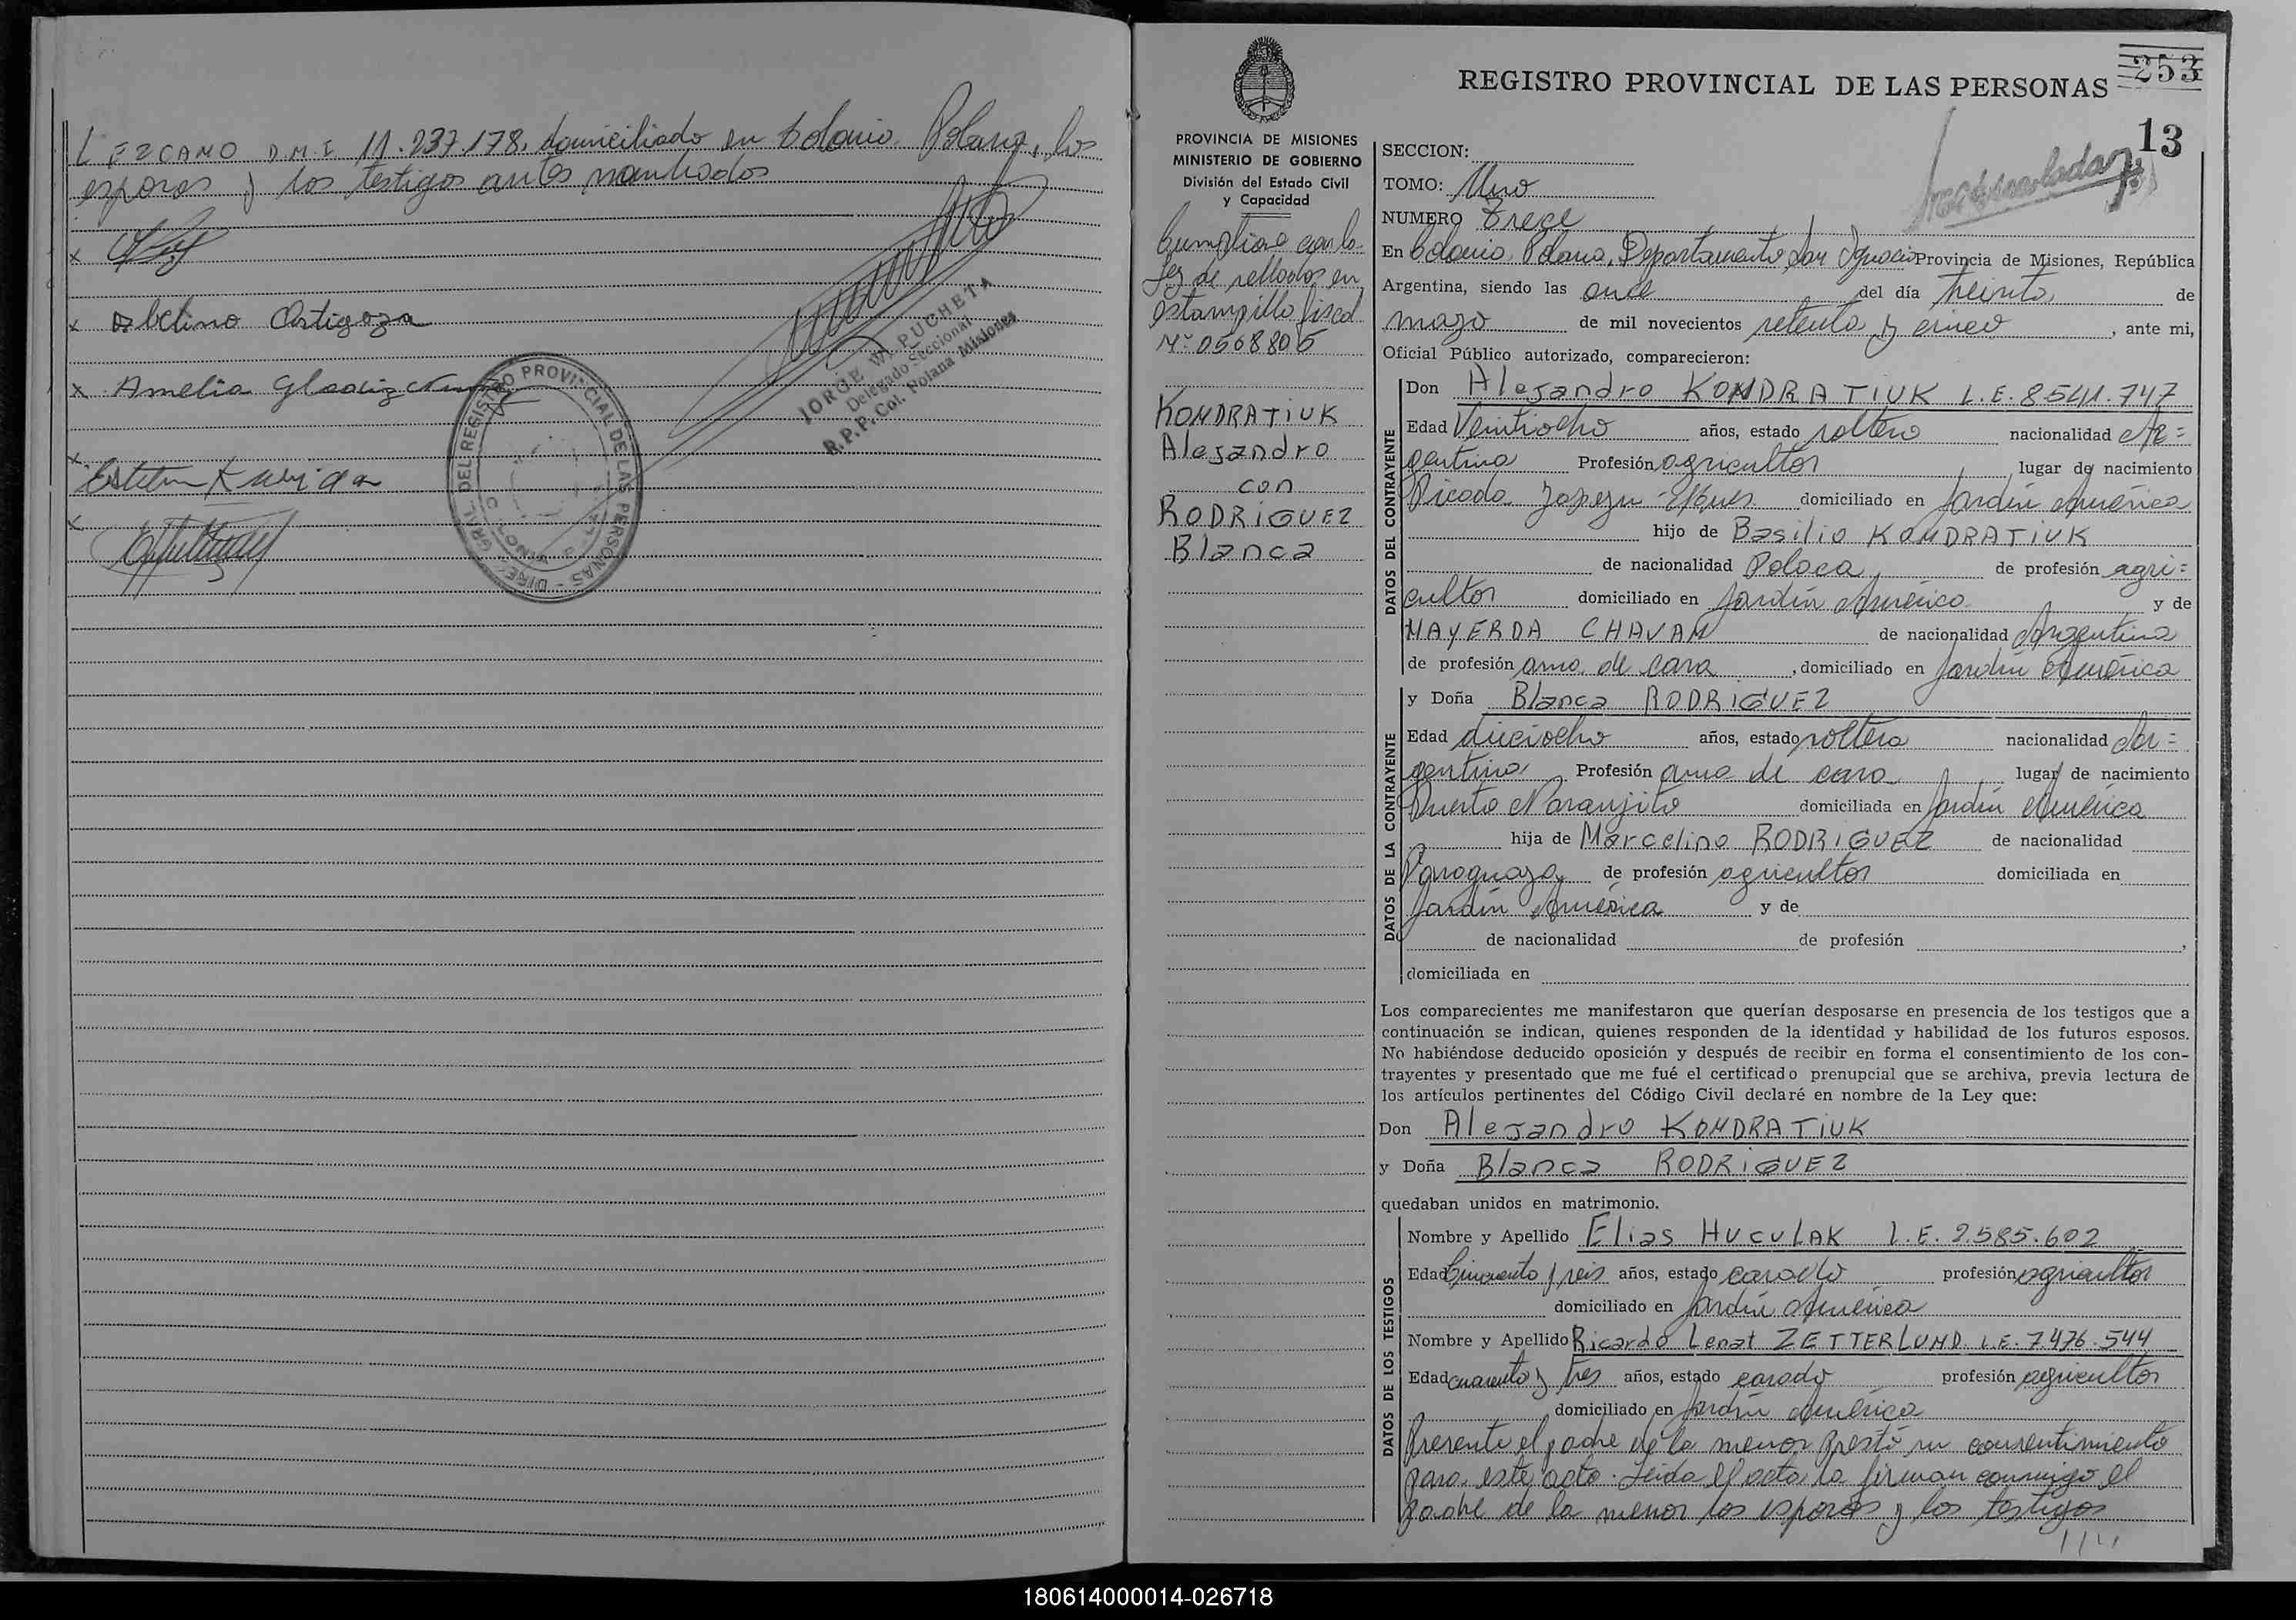 LEZCANO D.N.I 11.237.178, domiciliado en Colonia Polana, los
esposos y los testigos antes nombrados
x
x Abelino Ortigoza
x Amelia Gladiz
x Esteban
x
JORGE W. PUCHETA
Delegado Seccional
R.P.P. Col. Polana Misiones
DIREC. GRAL. DEL REGISTRO PROVINCIAL DE LAS PERSONAS
253
REGISTRO PROVINCIAL DE LAS PERSONAS
13
PROVINCIA DE MISIONES
MINISTERIO DE GOBIERNO
División del Estado Civil
y Capacidad
Cumpliose con la
ley de sellados en
estampilla fiscal
Nº 0568805
KONDRATIUK
Alejandro
con
RODRIGUEZ
Blanca
SECCION:
TOMO: Uno
NUMERO Trece
En Colonia Polana, Departamento San Ignacio Provincia de Misiones, República
Argentina, siendo las once del día treinta de
mayo de mil novecientos setenta y cinco, ante mi,
Oficial Público autorizado, comparecieron:
DATOS DEL CONTRAYENTE
Don Alejandro KONDRATIUK L.E. 8.541.747
Edad Veintiocho años, estado soltero nacionalidad Ar=
gentina Profesión agricultor lugar de nacimiento
Picada domiciliado en Jardín América
hijo de Basilio KONDRATIUK
de nacionalidad Polaca, de profesión agri=
cultor domiciliado en Jardín América y de
NAYERDA CHAVAN de nacionalidad Argentina
de profesión ama de casa, domiciliado en Jardín América
DATOS DE LA CONTRAYENTE
y Doña Blanca RODRIGUEZ
Edad dieciocho años, estado soltera nacionalidad Ar=
gentina Profesión ama de casa lugar de nacimiento
Puerto Naranjito domiciliada en Jardín América
hija de Marcelino RODRIGUEZ de nacionalidad
Paraguaya de profesión agricultor domiciliada en
Jardín América y de
de nacionalidad de profesión ,
domiciliada en
Los comparecientes me manifestaron que querían desposarse en presencia de los testigos que a
continuación se indican, quienes responden de la identidad y habilidad de los futuros esposos.
No habiéndose deducido oposición y después de recibir en forma el consentimiento de los con-
trayentes y presentado que me fué el certificado prenupcial que se archiva, previa lectura de
los artículos pertinentes del Código Civil declaré en nombre de la Ley que:
Don Alejandro KONDRATIUK
y Doña Blanca RODRIGUEZ
quedaban unidos en matrimonio.
DATOS DE LOS TESTIGOS
Nombre y Apellido Elias HUCULAK L.E. 2.585.602
Edad Cincuenta y seis años, estado casado profesión agricultor
domiciliado en Jardín América
Nombre y Apellido Ricardo Lenat ZETTERLUND L.E. 7.476.544
Edad cuarenta y tres años, estado casado profesión agricultor
domiciliado en Jardín América
Presente el padre de la menor prestó su consentimiento
para este acto. Leída el acta la firman conmigo el
padre de la menor los esposos y los testigos
180614000014-026718